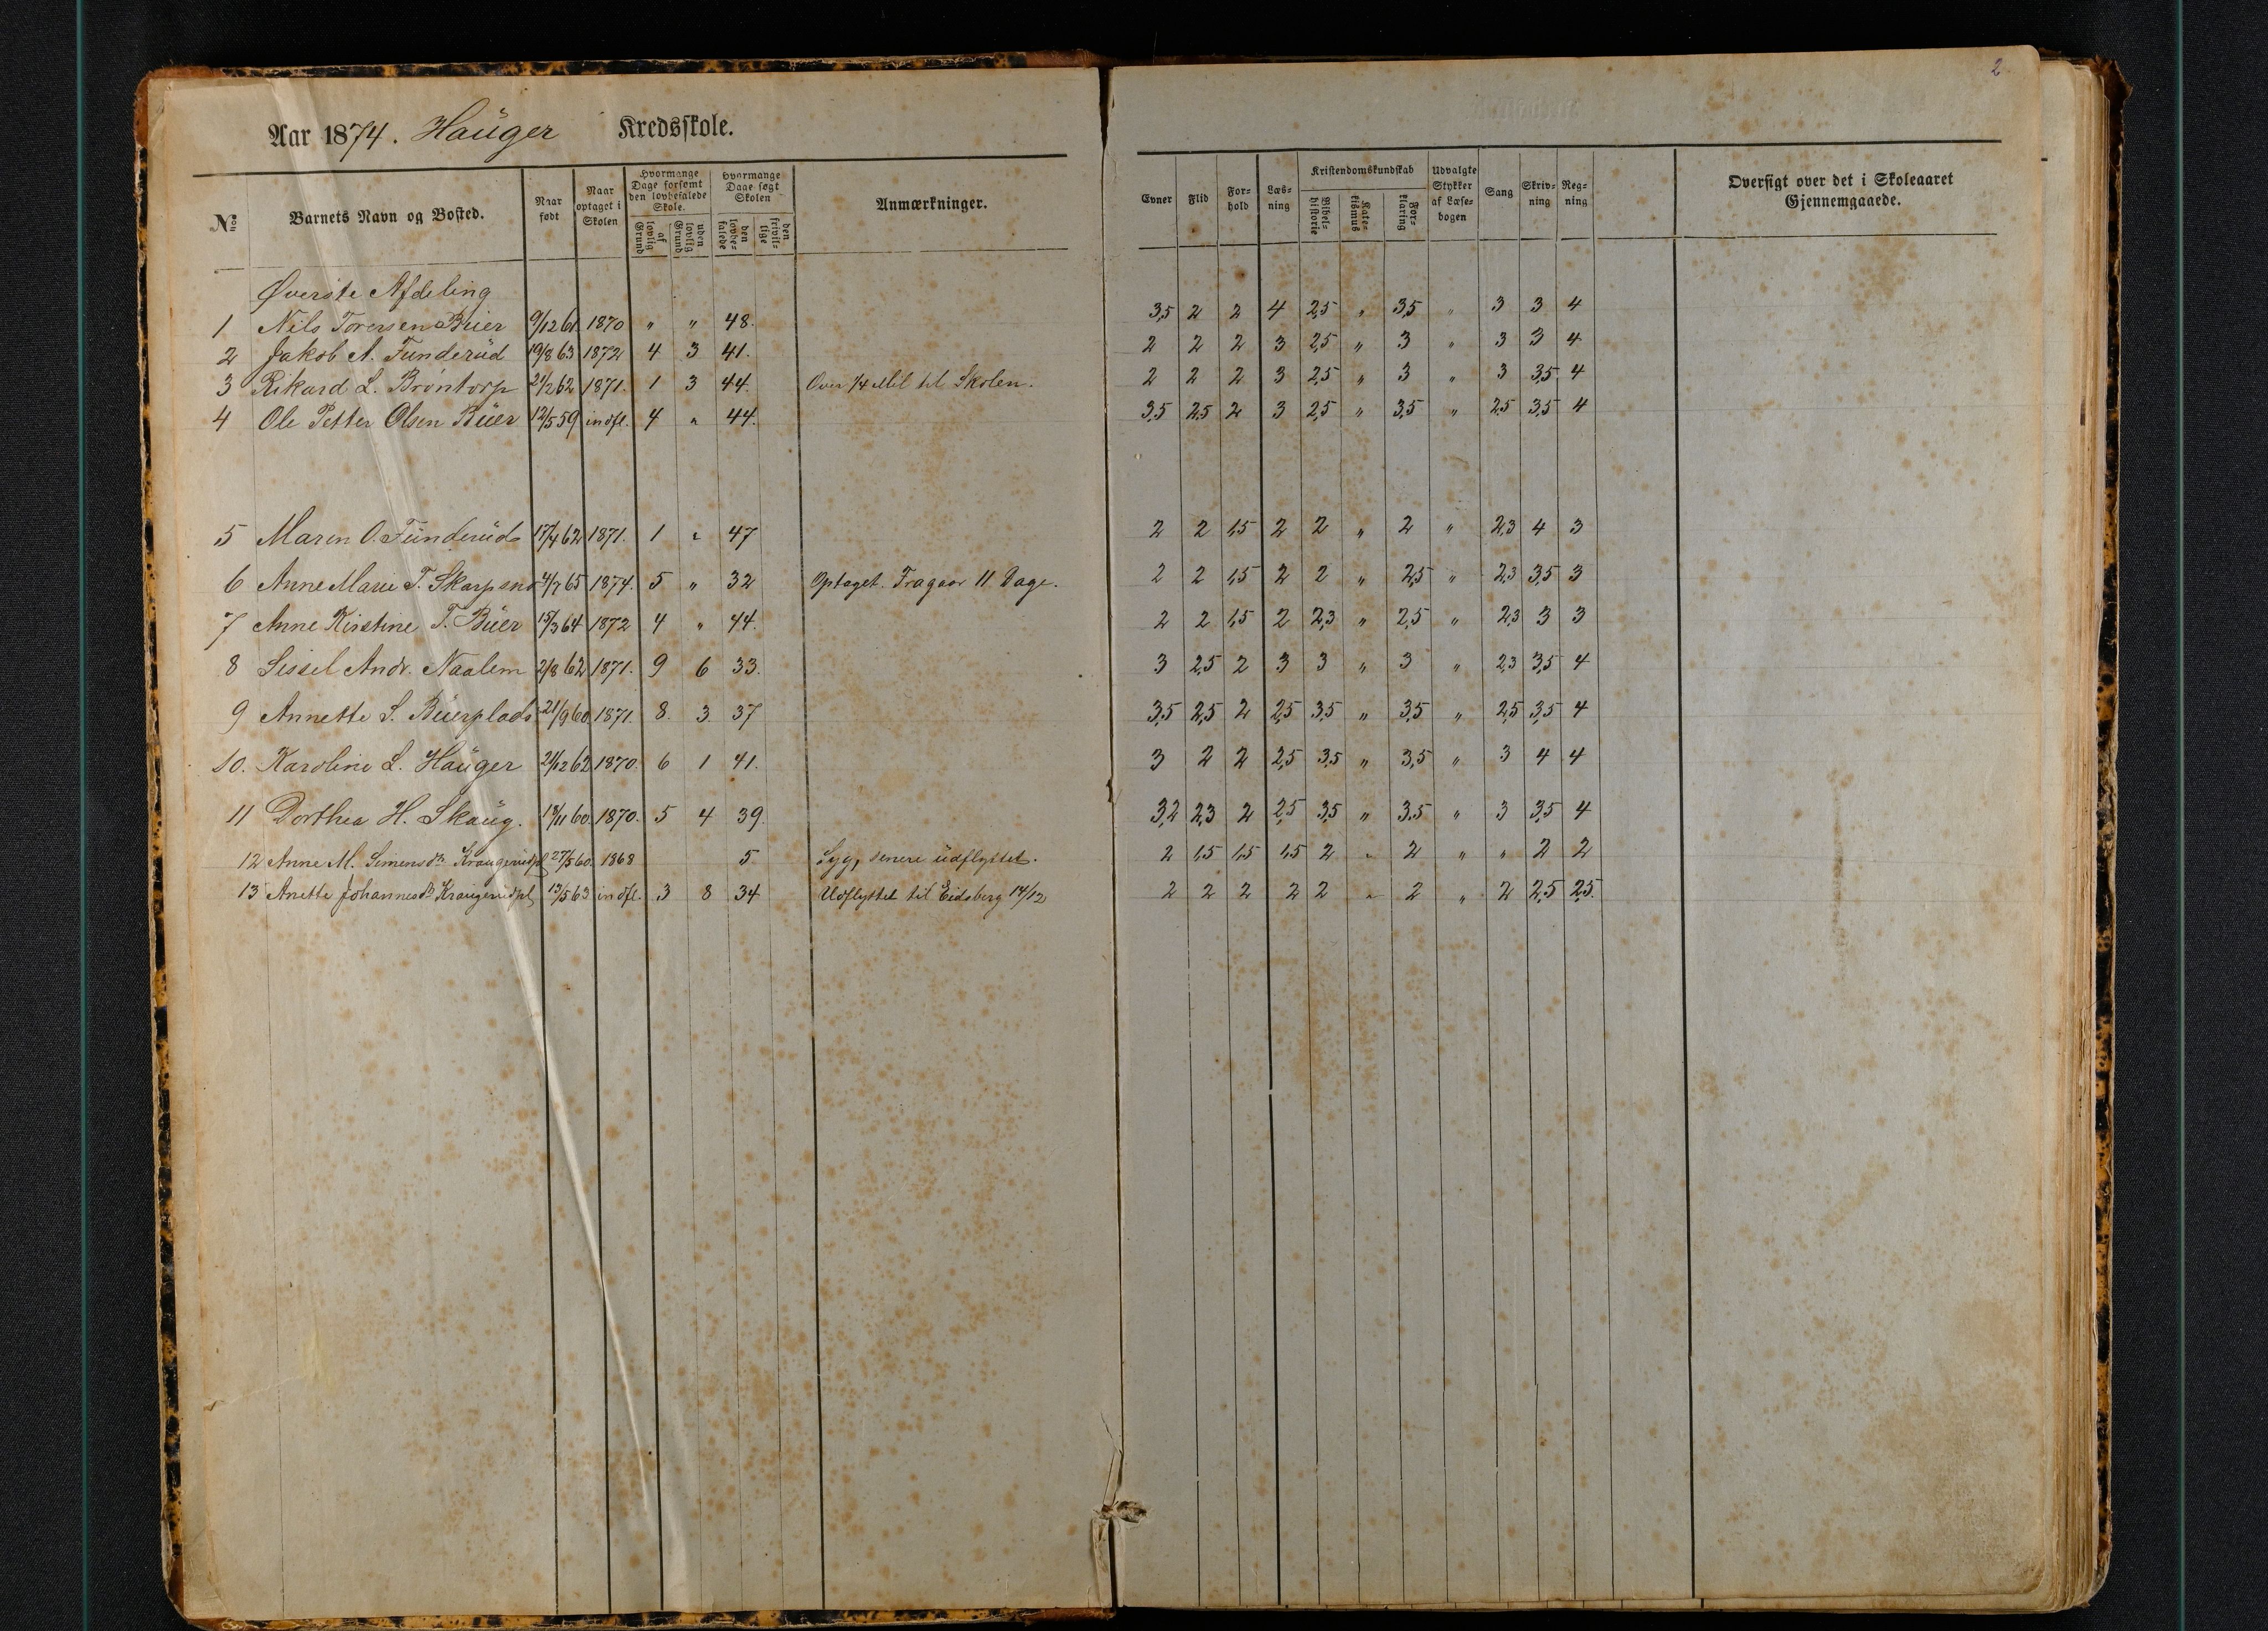 2
Aar 1874. Haüger Kredsskole.
No. Barnets Navn og Bosted. Naar født Naar optaget i Skolen Hvormange Dage forsømt den lovbefalede Skole. af lovlig Grund uden lovlig Grund Hvormange Dage søgt Skolen den lovbefalede den frivillige Anmærkninger. Evner Flid Forhold Læsning Kristendomskundskab Bibelhistorie Katekismus Forklaring Udvalgte Stykker af Læsebogen Sang Skrivning Regning Oversigt over det i Skoleaaret Gjennemgaaede.
Øverste Afdeling
1 Nils Toversen Büer 9/12 61. 1870 " " 48. 3,5 2 2 4 2,5 " 3,5 " 3 3 4
2 Jakob A. Funderüd 19/8 63 1872 4 3 41. 2 2 2 3 2,5 " 3 " 3 3 4
3 Rikard L. Bröntorp 21/2 62 1871. 1 3 44. Over 1/4 Mil til Skolen. 2 2 2 3 2,5 " 3 " 3 3,5 4
4 Ole Petter Olsen Büer 12/5 59 indfl. 4 " 44. 3,5 2,5 2 3 2,5 " 3,5 " 2,5 3,5 4
5 Maren O. Fünderüd 17/4 62 1871. 1 " 47 2 2 1,5 2 2 " 2 " 2,3 4 3
6 Anne Marie T. Skarpsno 4/7 65 1874. 5 " 32 Optaget. Fragaar 11 Dage. 2 2 1,5 2 2 " 2,5 " 2,3 3,5 3
7 Anne Kirstine T. Büer 15/3 64 1872 4 " 44. 2 2 1,5 2 2,3 " 2,5 " 2,3 3 3
8 Sissel Andr. Naalem 2/8 62 1871. 9 6 33. 3 2,5 2 3 3 " 3 " 2,3 3,5 4
9 Annette S. Büerplads 21/9 60. 1871. 8. 3. 37 3,5 2,5 2 2,5 3,5 " 3,5 " 2,5 3,5 4
10. Karoline L. Haüger 21/12 62 1870. 6 1 41. 3 2 2 2,5 3,5 " 3,5 " 3 4 4
11 Dorthea H. Skaüg. 18/11 60. 1870. 5 4 39. 3,2 2,3 2 2,5 3,5 " 3,5 " 3 3,5 4
12 Anne M. Simensdr. Kraugerüdpl. 27/5 60. 1868 5 Syg, senere üdflyttet. 2 1,5 1,5 1,5 2 " 2 " " 2 2
13 Anette Johannesdr. Kraugerüdpl. 13/5 63 indfl. 3 8 34 Udflyttet til Eidsberg 14/12 2 2 2 2 2 " 2 " 2 2,5 2,5.